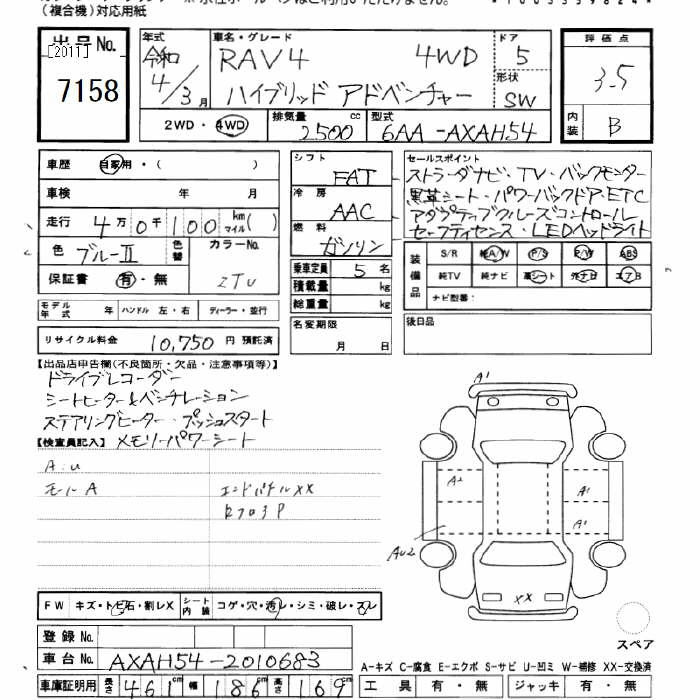 (複合機)対応用紙
出品No.
[2011]
7158
年式
令和
4/3月
車名・グレード
RAV4 4WD
ハイブリッド アドベンチャー
ドア
5
形状
SW
評価点
3.5
内装
B
2WD・4WD
排気量
2500cc
型式
6AA-AXAH54
車歴 自家用・( )
車検 年 月
走行 4万0千100km マイル( )
色 ブルーII
色替
カラーNo.
保証書 有・無
ZTU
シフト
FAT
冷房
AAC
燃料
ガソリン
乗車定員 5名
積載量 kg
総重量 kg
セールスポイント
ストラーダナビ・TV・バックモンター
黒革シート・パワーバックドア・ETC
アダプティブクルーズコントロール
セーフティセンス・LEDヘッドライト
装備品
S/R 純A/W P/S P/W ABS
純TV 純ナビ 革シート 外ナビ エアB
ナビ型番:
モデル年式 年 ハンドル 左・右 ディーラー・並行
リサイクル料金 10,750 円 預託済
名変期限
月 日
後日品
【出品店申告欄(不良箇所・欠品・注意事項等)】
ドライブレコーダー
シートヒーター&ベンチレーション
ステアリングヒーター・プッシュスタート
【検査員記入】メモリーパワーシート
A.U
モールA
エンドパネルXX
A1
A2
A1
A1
AU2
XX
スペア
FW キズ・トビ石・割レX
シート内装 コゲ・穴・汚レ・シミ・破レ・スレ
登録No.
車台No. AXAH54-2010683
車庫証明用 長さ 461 幅 186 高さ 169
A-キズ C-腐食 E-エクボ S-サビ U-凹ミ W-補修 XX-交換済
工具 有・無 ジャッキ 有・無